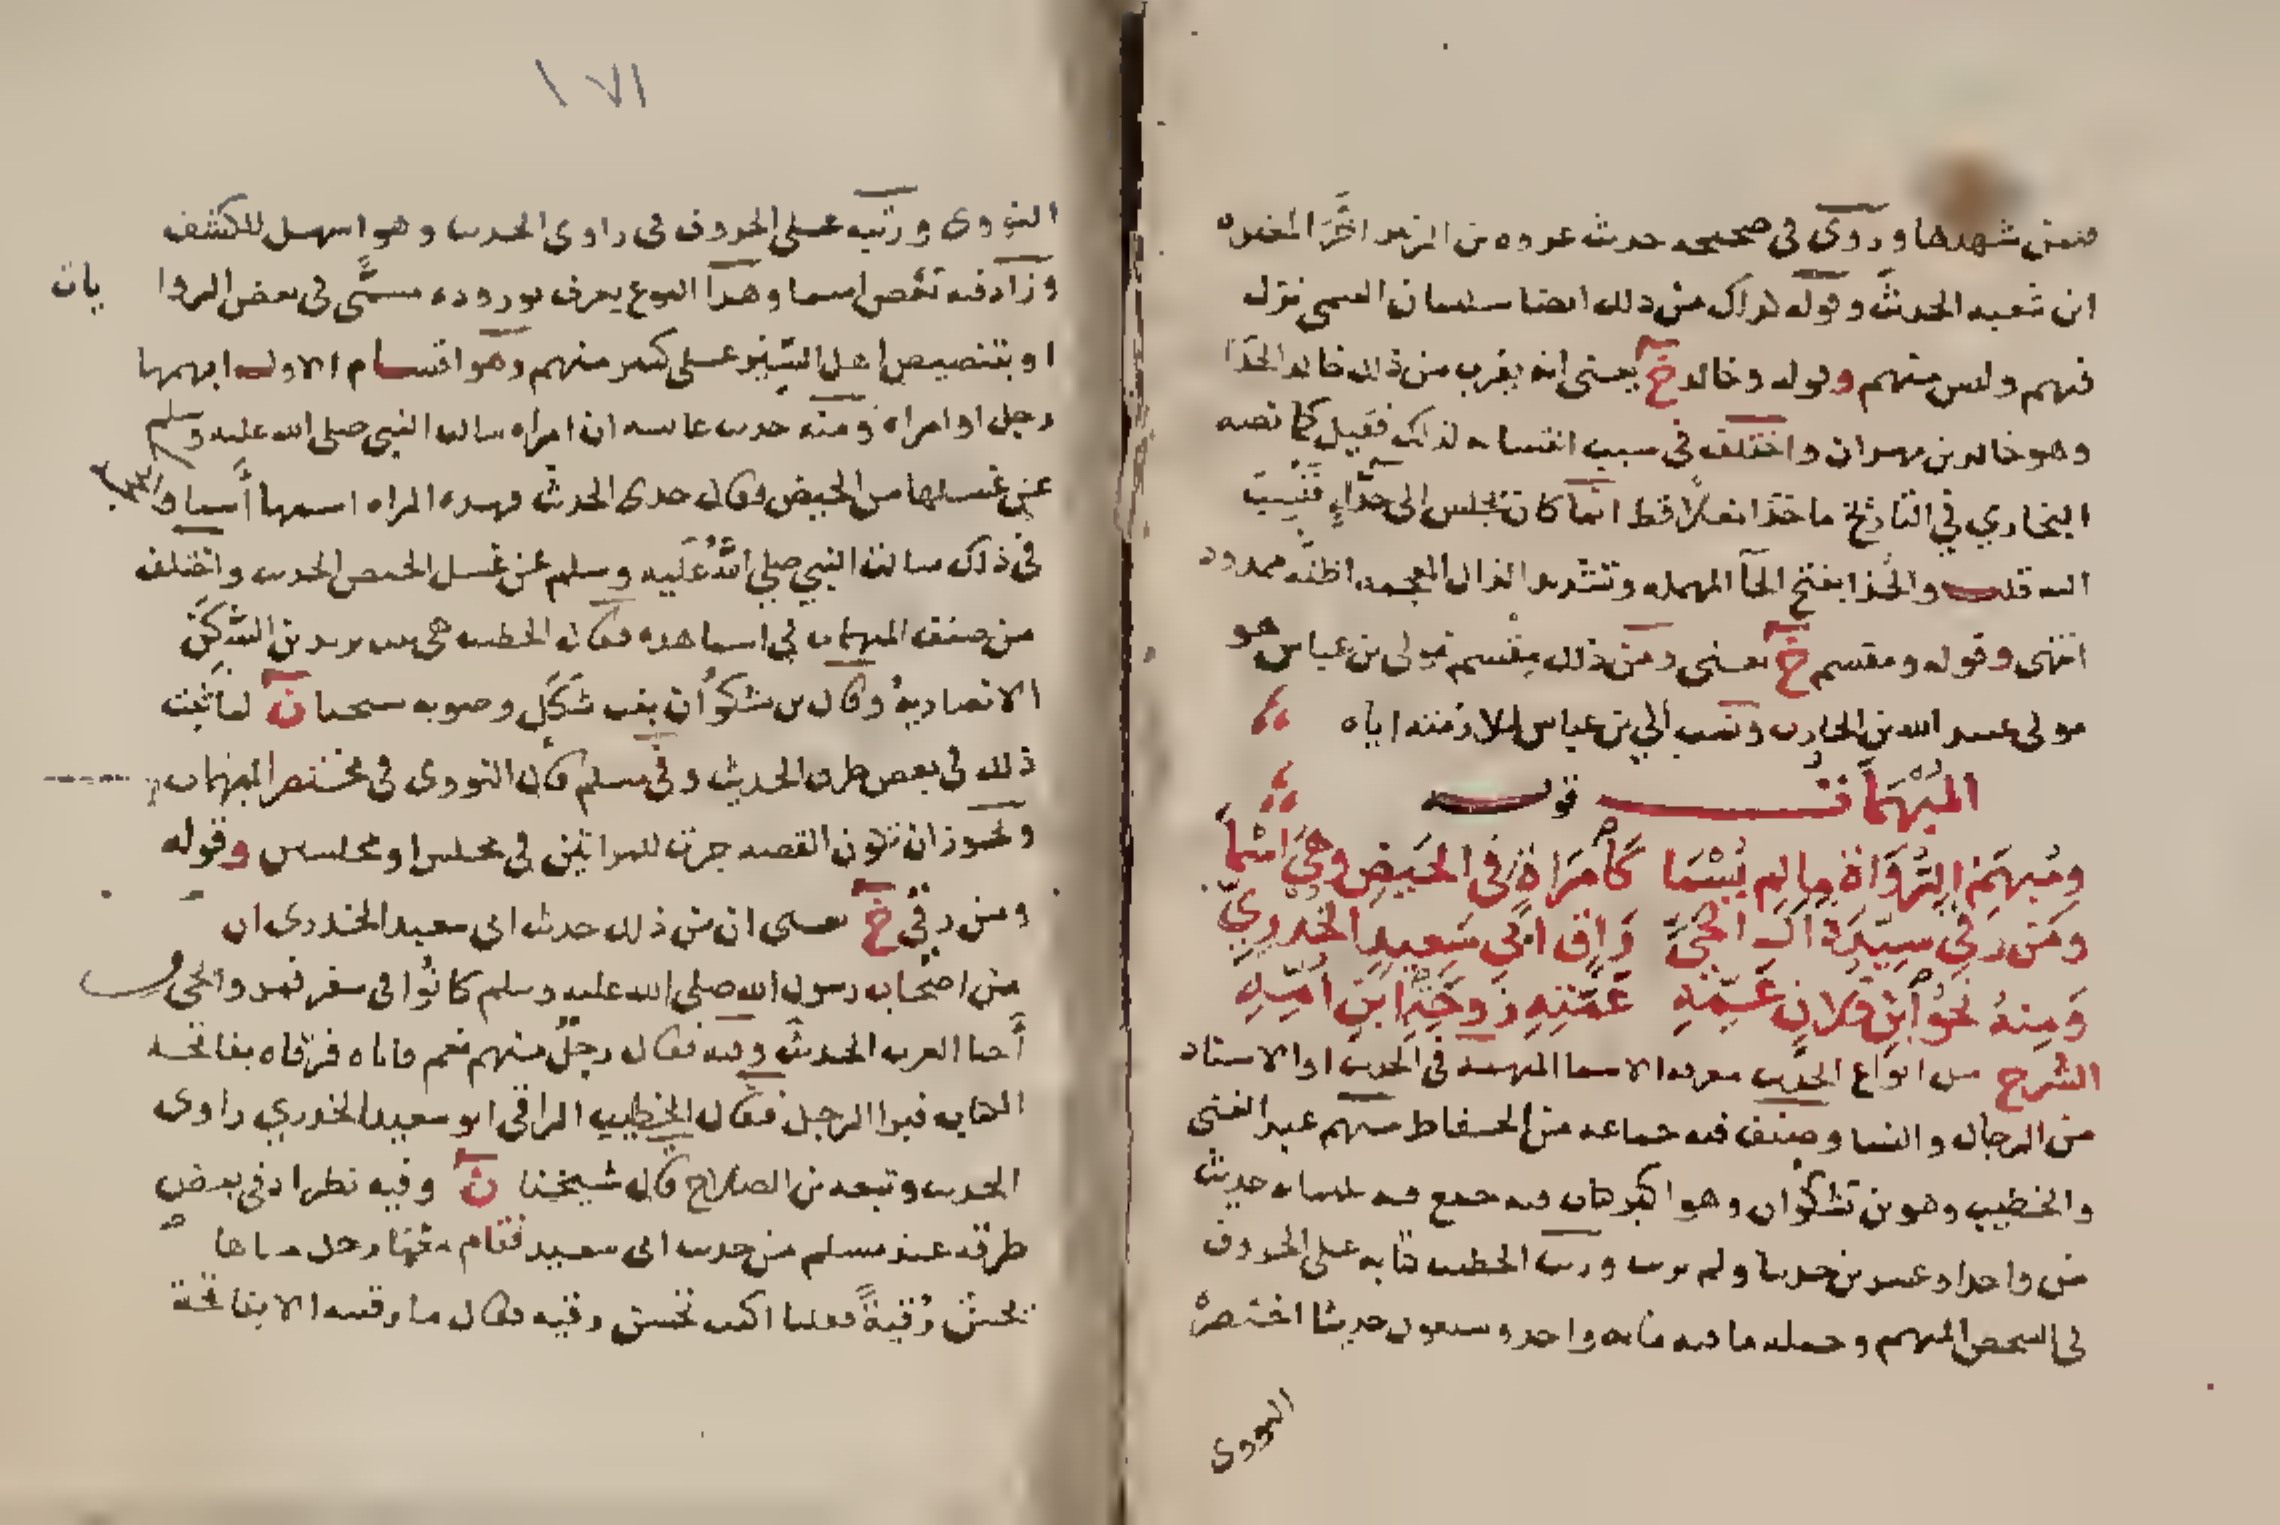 فيمن شهدها وروى في صحيحه حديث عروه بن الزبير اخر المغيره
ان شعبه الحديث وقوله كذاك من ذلك ايضا سليمان التيمي نزل
فيهم وليس منهم وقوله وخالد خ يعني انه يقرب من ذلك خالد الحذا
وهو خالد بن مهران واختلف في سبب انتسابه لذلك فقيل كما نصه
البخاري في التاريخ ما حذا نعلا قط انما كان يجلس الى حذاء فنسب
اليه قلت والحذا بفتح الحا المهمله وتشديد الذال المعجمه اظنه ممدود
انتهى وقوله ومقسم خ يعني ومن ذلك مقسم مولى بن عباس هو
مولى عبد الله بن الحارث ونسب الي بن عباس لملازمته اياه
المبهمات قوله
ومبهم الرواة مالم يسما كامراة في الحيض وهي اسما
ومن رقي سيد ذاك الحي راق ابي سعيد الخدري
ومنه نحو ابن فلان عمه عمته زوجته ابن امه
الشرح من انواع الحديث معرفه الاسما المبهمه في الحديث او الاسناد
من الرجال والنسا وصنف فيه جماعه من الحفاظ منهم عبد الغني
والخطيب وهو بن بشكوال وهو اكبر كتاب فيه جمع فيه ثلثمايه حديث
من واحدا وعشرين حديثا ولم يرتب ورتب الخطيب كتابه على الحروف
في الشخص المبهم وجمله ما فيه مايه واحد وسبعون حديثا اختصره
النووى
١٧١
النووى ورتبه على الحروف في راوى الحديث وهو اسهل للكشف
وزاد فيه بعض اسما وهذا النوع يعرف بوروده مسمى في بعض الروايات
او بتنصيص اهل السير على كثير منهم وهو اقسام الاول ابهمها
رجل او امراه ومنه حديث عايشه ان امراه سالت النبي صلى الله عليه وسلم
عن غسلها من الحيض فقال خذى الحديث فهذه المراه اسمها أسما والحجه
في ذلك سالت النبي صلي الله عليه وسلم عن غسل الحيض الحديث واختلف
من صنف المبهمات في اسما هذه فقال الخطيب هي بنت يزيد بن السكن
الانصارية وقال بن بشكوال بنت شكل وصوبه شيخنا ن لما ثبت
ذلك في بعض طرق الحديث وفي مسلم قال النووى في مختصر المبهمات
ويجوز ان تكون القصه جرت للمراتين في مجلس او مجلسين وقوله
ومن رقي خ يعني ان من ذلك حديث ابي سعيد الخدرى ان
من اصحاب رسول الله صلى الله عليه وسلم كانوا في سفر فمروا بحي من
أحيا العرب الحديث وفيه فقال رجل منهم نعم فاتاه فرقاه بفاتحه
الكتاب فبرا الرجل فقال الخطيب الراقي ابو سعيد الخدري راوى
الحديث وتبعه بن الصلاح قال شيخنا ن وفيه نظر اذ في بعض
طرقه عند مسلم من حديث ابي سعيد فقام معها رجل ما كنا
يحسن رقية فقلنا اكنت تحسن رقيه فقال ما رقيته الا بفاتحة